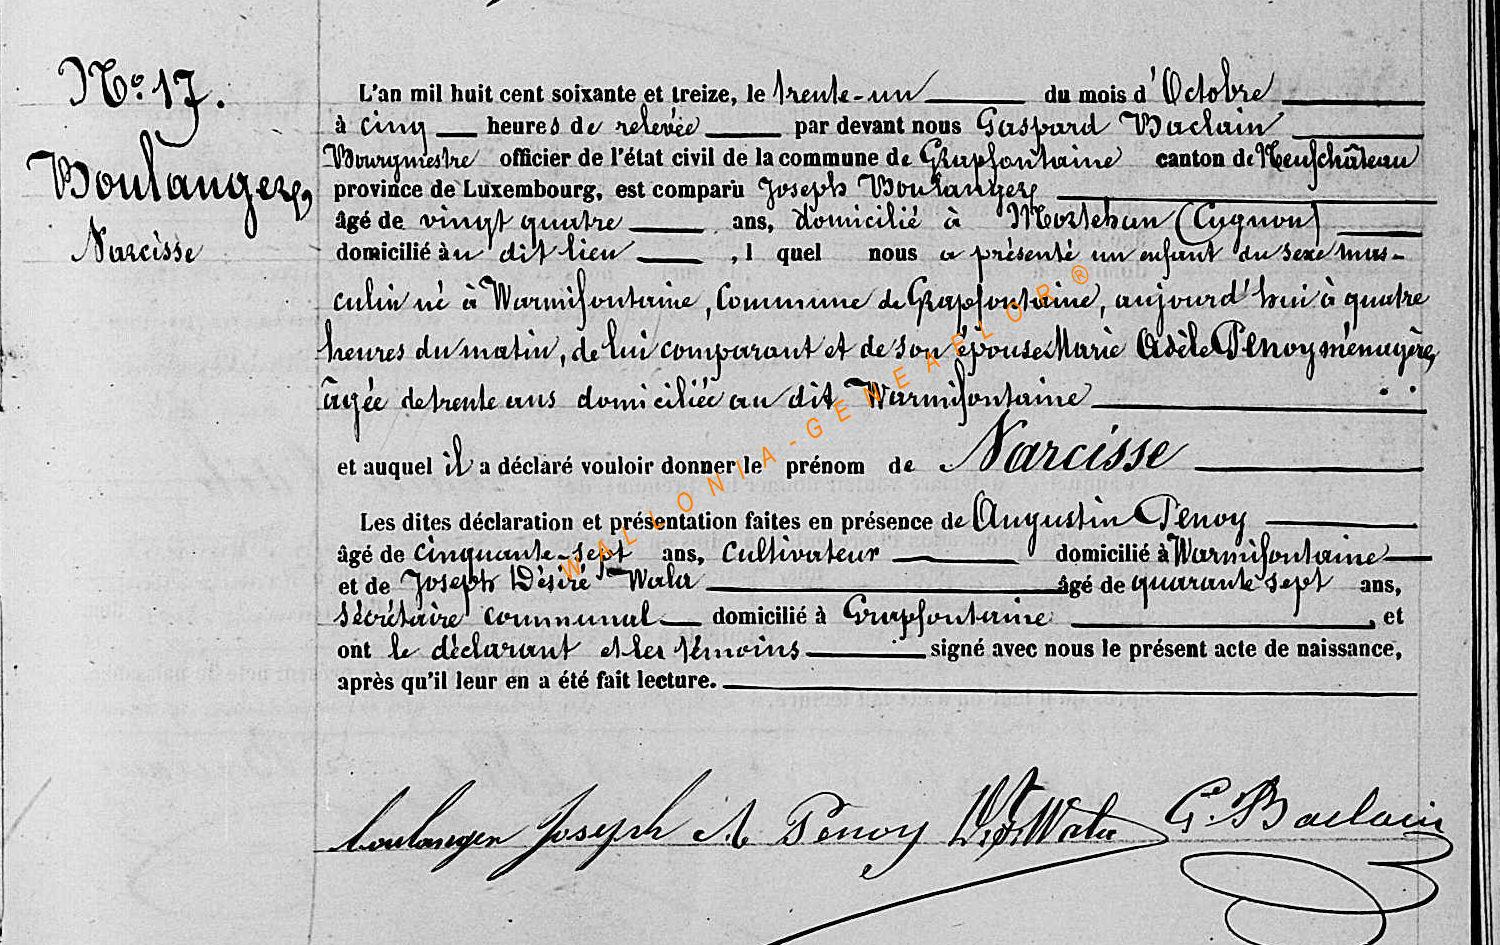 No. 17.
Boulanger,
Narcisse
L'an mil huit cent soixante et treize, le trente-un du mois d'Octobre
à cinq heures de relevée par devant nous Gaspard Baclain
Bourgmestre officier de l'état civil de la commune de Grapfontaine canton de Neufchâteau
province de Luxembourg, est comparu Joseph Boulanger
âgé de vingt quatre ans, domicilié à Mortehan (Cugnon)
domicilié au dit lieu, l quel nous a présenté un enfant du sexe mas-
culin né à Warmifontaine, Commune de Grapfontaine, aujourd'hui à quatre
heures du matin, de lui comparant et de son épouse Marie Adèle Penoy ménagère,
âgée de trente ans domiciliée au dit Warmifontaine
et auquel il a déclaré vouloir donner le prénom de Narcisse
Les dites déclaration et présentation faites en présence de Augustin Penoy
âgé de cinquante-sept ans, cultivateur domicilié à Warmifontaine
et de Joseph Désiré Wala âgé de quarante sept ans,
sécrétaire communal domicilié à Grapfontaine, et
ont le déclarant et les témoins signé avec nous le présent acte de naissance,
après qu'il leur en a été fait lecture.
boulanger Joseph A Penoy Wala G. Baclain
WALLONIA-GENEAELOR®